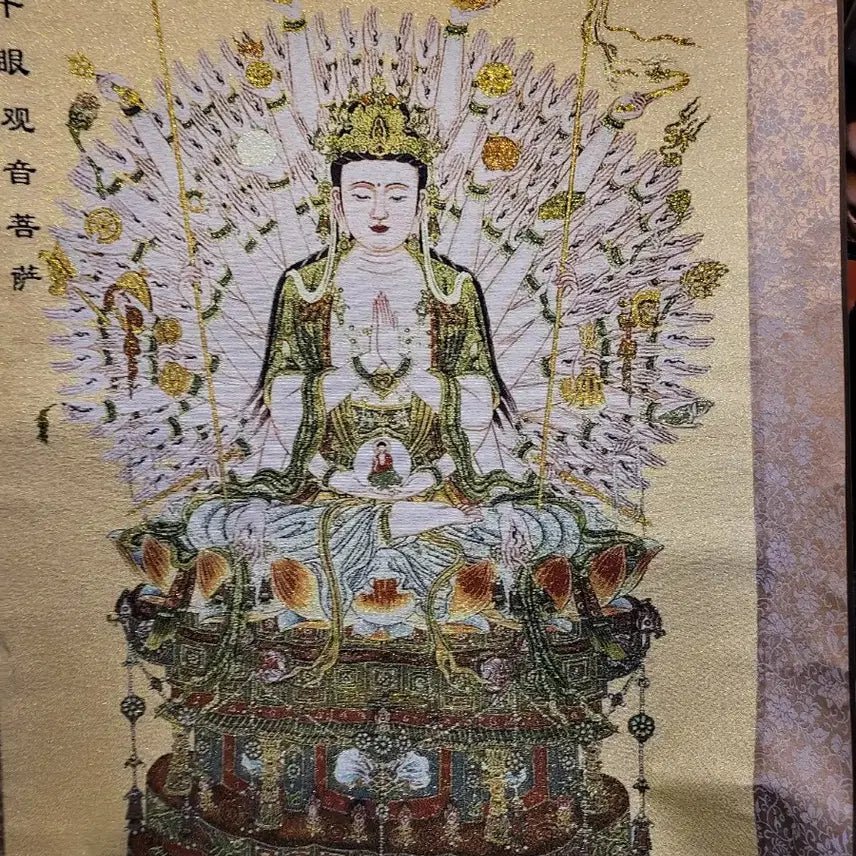 眼观音菩萨